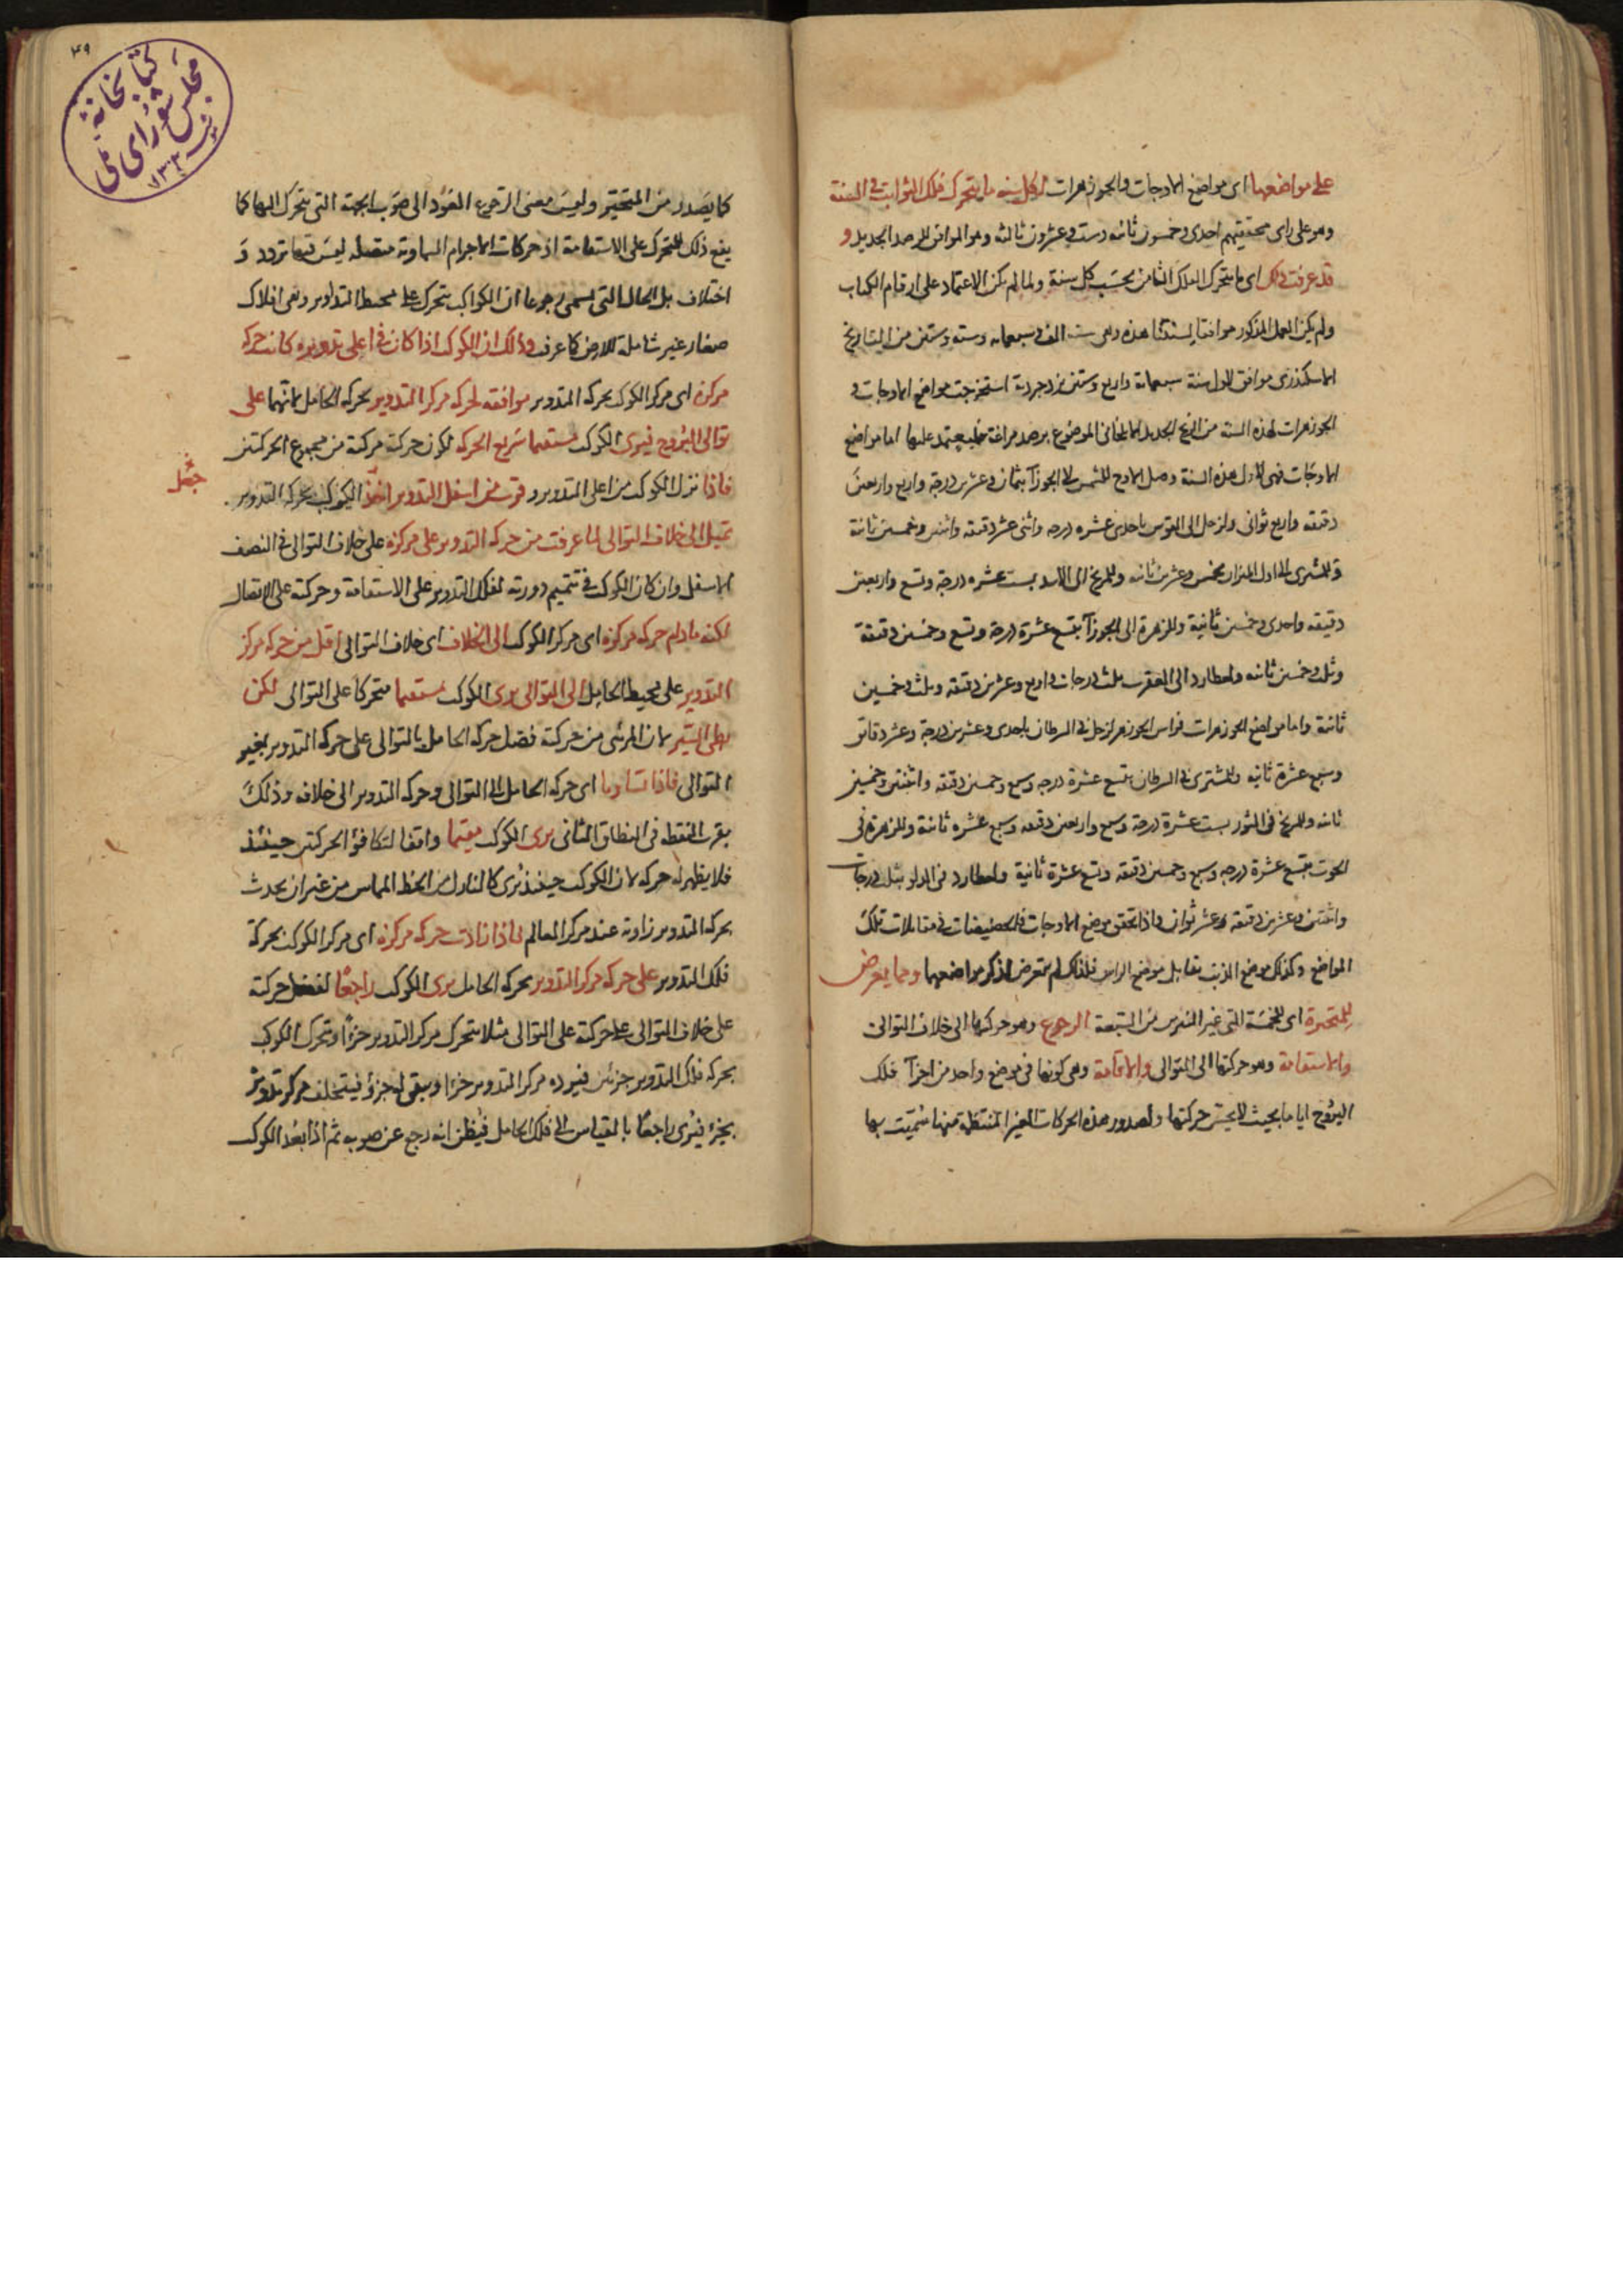 على مواضعها اى مواضع الاوجات والجوزهرات لكل سنة ما يتحرك فلك الثوابت فى السنة
وهو على راى محققيهم احدى وخمسون ثانية وست وعشرون ثالثة وهو الموافق للرصد الجديد و
قد عرفت ذلك اى ما يتحرك الفلك الثامن بحسب كل سنة ولما لم يكن الاعتماد على ارقام الكتاب
ولم يكن العمل المذكور موافقا لسنتنا هذه وهى سنة الف وسبعمائة وستة وستين من التاريخ
الاسكندرى موافق لاول سنة سبعمائة واربع وستين يزدجردية استخرجت مواضع الاوجات و
الجوزهرات لهذه السنة من الزيج الجديد الايلخانى الموضوع برصد مراغة فليعتمد عليها اما مواضع
الاوجات فهى لاول هذه السنة وصل الاوج للشمس الى الجوزآ بثمان وعشرين درجة واربع واربعين
دقيقة واربع ثوانى ولزحل الى القوس باحدى عشره درجه واثنى عشر دقيقة واثنين وخمسين ثانية
وللمشترى الى اول الميزان بخمس وعشرين ثانية وللمريخ الى الاسد بست عشره درجة وتسع واربعين
دقيقه واحدى وخمسين ثانية وللزهرة الى الجوزآ بتسع عشرة درجة وتسع وخمسين دقيقة
وثلث وخمسين ثانيه ولعطارد الى العقرب بثلث درجات واربع وعشرين دقيقه وثلث وخمسين
ثانية واما مواضع الجوزهرات فراس الجوزهر لزحل فى السرطان باحدى وعشرين درجة وعشر دقائق
وسبع عشرة ثانيه وللمشترى فى السرطان بتسع عشرة درجه وسبع وخمسين دقيقه واثنتين وخمسين
ثانيه وللمريخ فى الثور بست عشرة درجة وسبع واربعين دقيقه وسبع عشره ثانية وللزهرة فى
الحوت بتسع عشرة درجه وسبع وخمسين دقيقه وتسع عشرة ثانية ولعطارد فى الدلو بثلث درجات
واثنتين وعشرين دقيقه وعشر ثوان واذا تحقق موضع الاوجات فالحضيضات فى مقابلات تلك
المواضع وكذلك موضع الذنب يقابل موضع الراس فلذلك لم يتعرض لذكر مواضعها ومما يعرض
للمتحيرة اى للخمسة التى غير النيرين من السبعة الرجوع وهو حركتها الى خلاف التوالى
والاستقامة وهو حركتها الى التوالى والاقامة وهى كونها فى موضع واحد من اجزآ فلك
البروج اياما بحيث لا يحس حركتها ولصدور هذه الحركات الغير المنتظمة منها سُمّيت بها
٤٩
كتابخانهٔ
مجلس شورای ملی
كما يصدر من المتحيّر وليس معنى الرجوع العَود الى صَوب الجهة التى يتحرك اليها كما
يقع ذلك للمتحرك على الاستقامة اذ حركات الاجرام السماوية متصله ليس فيها تردد وَ
اختلاف بل الحال التى يسمى رجوعا ان الكواكب يتحرك على محيط التداوير وهى افلاك
صغار غير شاملة للارض كما عرفت وذلك ان الكوكب اذا كان فى اعلى تدويره كانت حركه
مركزه اى مركز الكوكب بحركة التدوير موافقه لحركه مركز التدوير بحركه الحامل لانهما على
توالى البُروج فيرى الكوكب مستقيما سَريع الحركه لكون حركته مركبة من مجموع الحركتين
فاذا نزل الكوكب من اعلى التدوير وقرب من اسفل التدوير اخذ الكوكب بحركه التدوير
جعل
تميل الى خلاف التوالى لما عرفت من حركه التدوير على مركزه على خلاف التوالى فى النصف
الاسفل وان كان الكوكب فى تتميم دورته لفلك التدوير على الاستقامة وحركته على الاتصال
لكنه مادام حركه مركزه اى مركز الكوكب الى الخلاف اى خلاف التوالى اقل من حركه مركز
التدوير على محيط الحامل الى التوالى يرى الكوكب مستقيما متحركا على التوالى لكن
بطى السّير لان المرئى من حركته فضل حركه الحامل بالتوالى على حركه التدوير بغير
التوالى فاذا تساويا اى حركه الحامل الى التوالى وحركه التدوير الى خلافه وذلك
بقرب النقطه فى النطاق الثانى يرى الكوكب مقيما واقفا لتكافؤ الحركتين حينئذ
فلا يظهر له حركه لان الكوكب حينئذ يُرى كالنازل من الخط المماس من غير ان يحدث
بحركه التدوير زاوية عند مركز العالم فاذا زادت حركه مركزه اى مركز الكوكب بحركة
فلك التدوير على حركه مركز التدوير بحركه الحامل يرى الكوكب راجعًا لفضل حركته
على خلاف التوالى على حركته على التوالى مثلا يتحرك مركز التدوير جزءًا ويتحرك الكوكب
بحركه فلك التدوير جزئين فيرده مركز التدوير جزءا ويبقى له جزؤ فيتخلف مركز تدويره
بجزء فيُرى راجعًا بالقياس الى فلك الحامل فيُظن انه رجع عن صوبه ثم اذا بعُد الكوكب